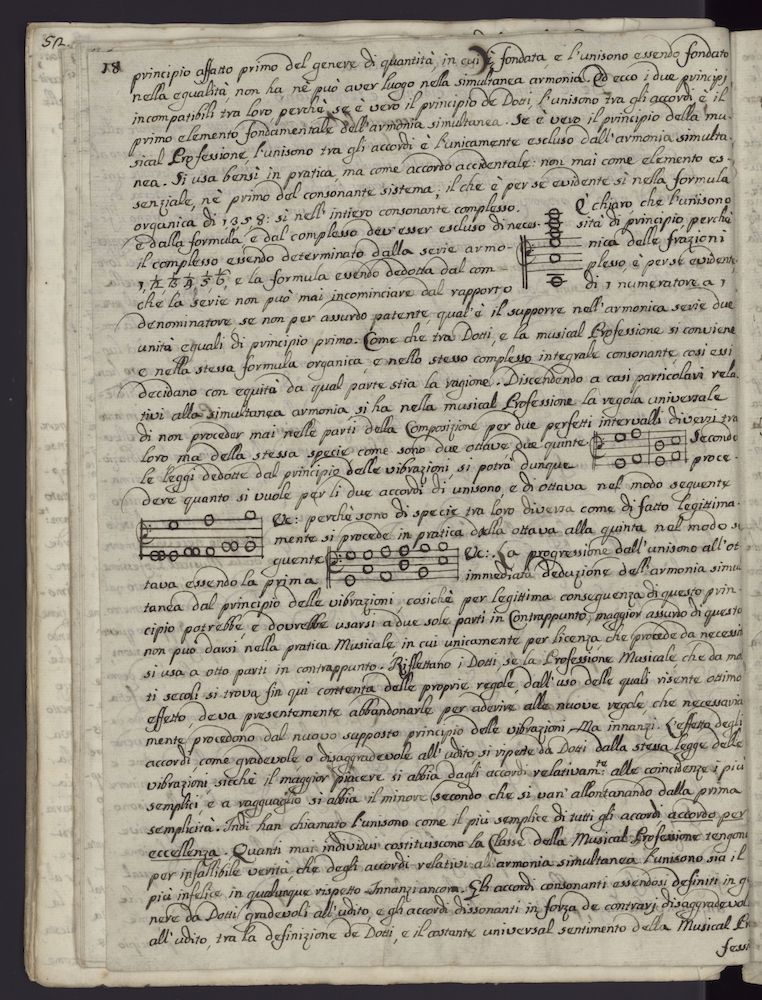 512
18
principio affatto primo del genere di quantità, in cui è fondata e l'unisono essendo fondato
nella equalità non ha nè può aver luogo nella simultanea armonia. Ed ecco i due principj
incompatibili tra loro perchè se è vero il principio de Dotti, l'unisono tra gli accordi è il
primo elemento fondamentale dell'armonia simultanea. Se è vero il principio della mu-
sical Professione, l'unisono tra gli accordi è l'unicamente escluso dall'armonia simulta-
nea. Si usa bensì in pratica, ma come accordo accidentale: non mai come elemento es-
senziale, nè primo del consonante sistema; il che è per se evidente sì nella formula
organica di 1, 3, 5, 8: sì nell'intiero consonante complesso. È chiaro che l'unisono
e dalla formula e dal complesso dev'esser escluso di neces- sità di principio perchè
il complesso essendo determinato dalla serie armo- nica delle frazioni
1, 1/2, 1/3, 1/4, 1/5, 1/6, e la formula essendo dedotta dal com plesso, è per se evidente
che la serie non può mai incominciare dal rapporto di 1 numeratore a 1
denominatore se non per assurdo patente, qual'è il supporre nell'armonica serie due
unità equali di principio primo. Come che tra Dotti, e la musical Professione si conviene
e nella stessa formula organica e nello stesso complesso integrale consonante, così essi
decidano con equità da qual parte stia la ragione. Discendendo a casi particolari rela-
tivi alla simultanea armonia si ha nella musical Professione la regola universale
di non proceder mai nelle parti della Composizione per due perfetti intervalli diversi tra
loro ma della stessa specie come sono due ottave, due quinte Secondo
le leggi dedotte dal principio delle vibrazioni si potrà dunque proce-
dere quanto si vuole per li due accordi di unisono, e di ottava nel modo seguente
Ec: perchè sono di specie tra loro diversa come di fatto legittima-
mente si procede in pratica dalla ottava alla quinta nel modo se
guente Ec: La progressione dall'unisono all'ot
tava essendo la prima immediata deduzione dell'armonia simul
tanea dal principio delle vibrazioni, cosichè per legittima conseguenza di questo prin-
cipio potrebbe, e dovrebbe usarsi a due sole parti in Contrappunto, maggior assurdo di questo
non può darsi nella pratica Musicale, in cui unicamente per licenza, che procede da necessi
si usa a otto parti in contrappunto. Riflettano i Dotti, se la Professione Musicale che da mo
ti secoli si trova fin quì contenta delle proprie regole, dall'uso delle quali risente ottimo
effetto, deva presentemente abbandonarle per aderire alle nuove regole che necessaria
mente procedono dal nuovo supposto principio delle vibrazioni. Ma innanzi. L'effetto degli
accordi, come gradevole o disaggradevole all'udito si ripette da Dotti dalla stessa legge delle
vibrazioni, sicchè il maggior piacere si abbia dagli accordi relativam.te alle coincidenze i più
semplici, e a ragguaglio si abbia il minore secondo che si van' allontanando dalla prima
semplicità. Indi han chiamato l'unisono come il più semplice di tutti gli accordi accordo per
eccellenza. Quanti mai individui costituiscono la Classe della Musical Professione tengono
per infallibile verità, che degli accordi relativi all'armonia simultanea l'unisono sia il
più infelice in qualunque rispetto. Innanzi ancora. Gli accordi consonanti essendosi definiti in ge
nere da Dotti gradevoli all'udito, e gli accordi dissonanti in forza de contrarj disaggradevol
all'udito, tra la definizione de Dotti, e il costante universal sentimento della Musical Pro
fessi